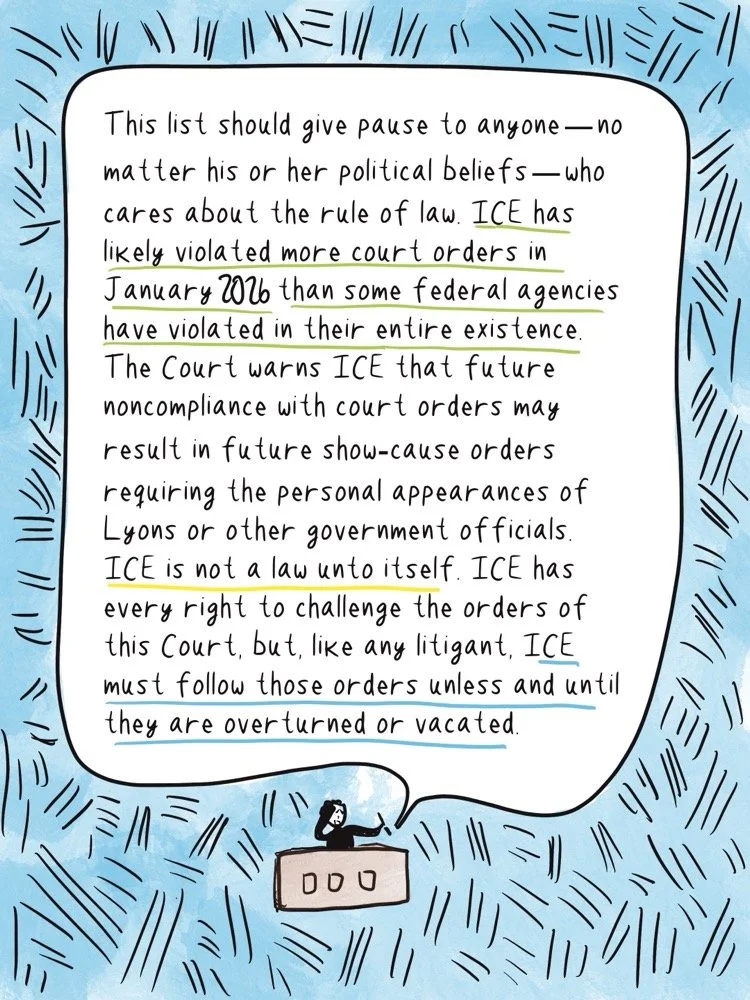 This list should give pause to anyone—no
matter his or her political beliefs—who
cares about the rule of law. ICE has
likely violated more court orders in
January 2026 than some federal agencies
have violated in their entire existence.
The Court warns ICE that future
noncompliance with court orders may
result in future show-cause orders
requiring the personal appearances of
Lyons or other government officials.
ICE is not a law unto itself. ICE has
every right to challenge the orders of
this Court, but, like any litigant, ICE
must follow those orders unless and until
they are overturned or vacated.